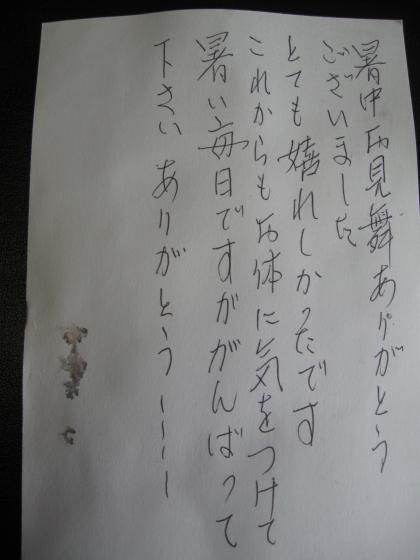 暑中お見舞ありがとう
ございました
とても嬉れしかったです
これからもお体に気をつけて
暑い毎日ですががんばって
下さい ありがとうーーー